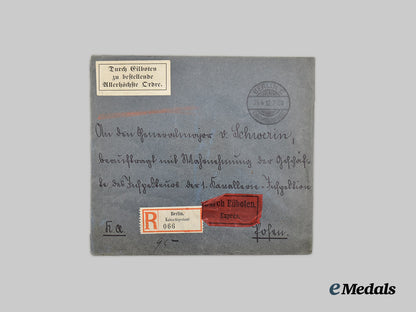 Durch Eilboten
zu bestellende
Allerhöchste Ordre.
An den Generalmajor v. Schwerin,
beauftragt mit Wahrnehmung der Geschäf-
te des Inspekteurs der 1. Kavallerie-Inspektion
R
Berlin.
066
Durch Eilboten.
Exprès.
Posen.
eMedals